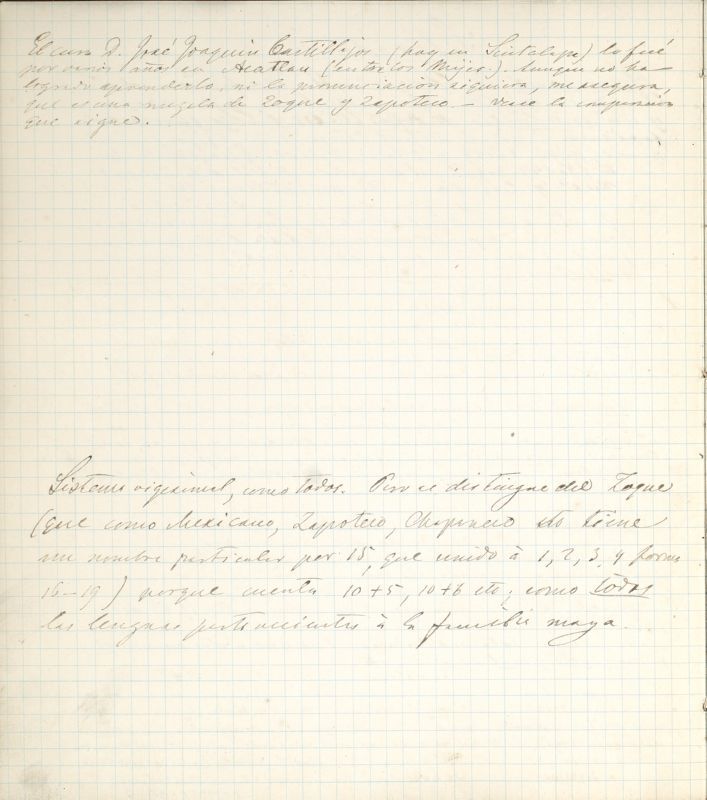 El cura D. José Joaquin Castillejos (hoy en Jiutalapa) lo fué
por varios años en Acatlan (entre los Mijes). Aunque no ha
logrado aprenderlo, ni la pronunciacion siquiera, me asegura,
que es una mezcla de Zoque y Zapoteco. — Vease la comparacion
que sigue.
Sistema vigesimal, como todos. Pero se distingue del Zoque
(que como Mexicano, Zapoteco, Chapaneco etc tiene
un nombre particular por 15, que unido à 1, 2, 3, 4 forma
16–19) porque cuenta 10+5, 10+6 etc, como todas
las lenguas pertenecientes à la familia maya.